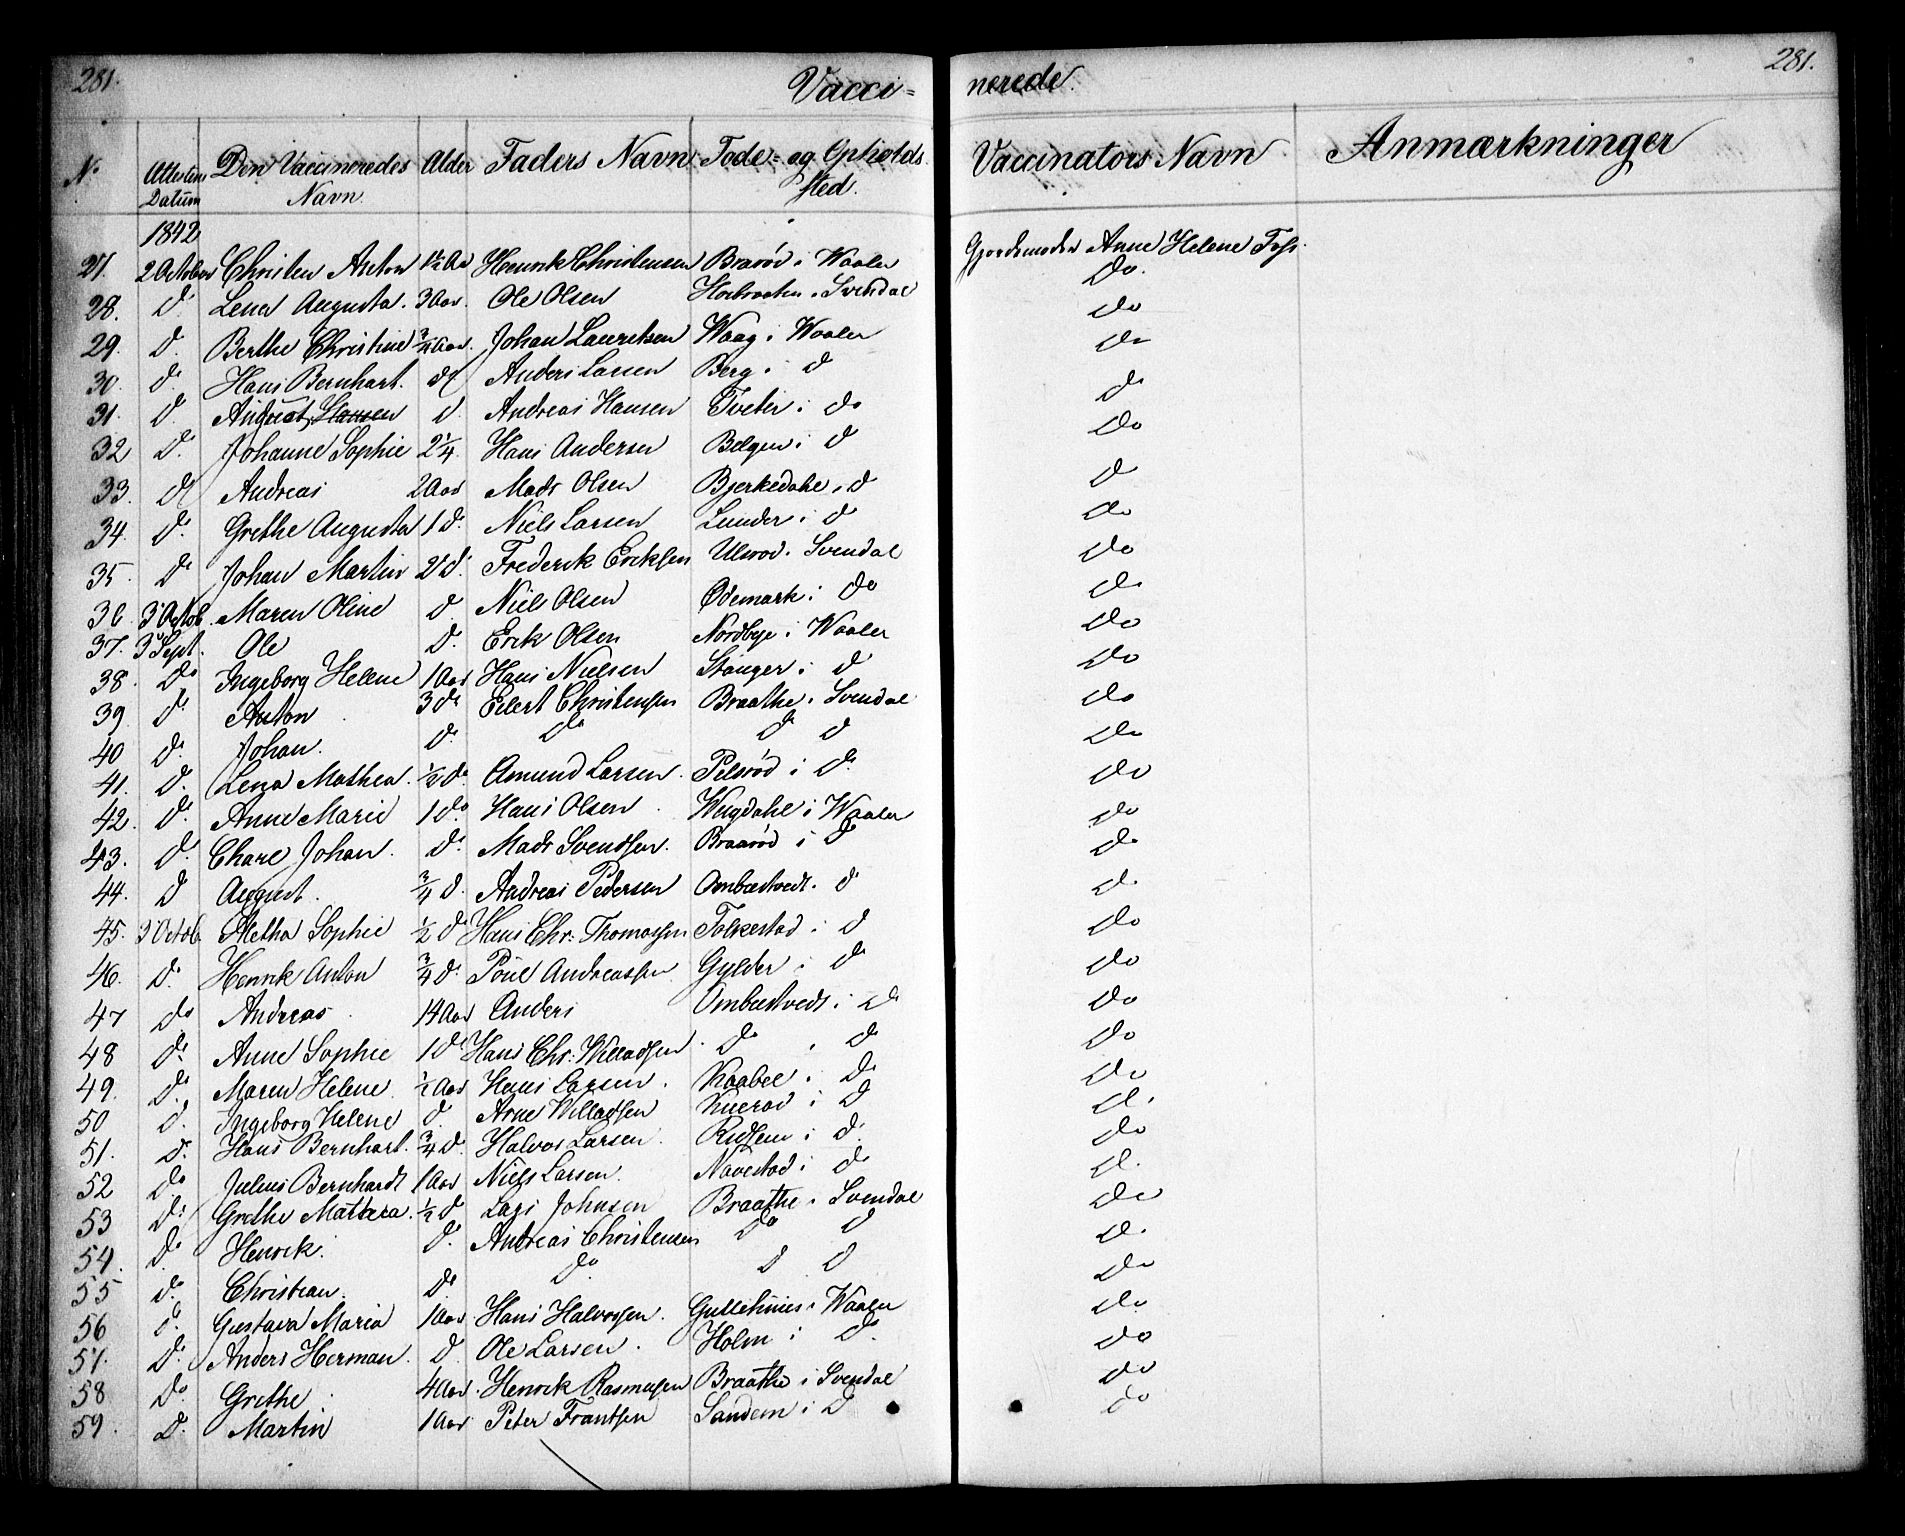 281. Vacci= nerede. 281.
No. Attestens Datum Den Vaccineredes Navn. Alder Faders Navn Føde= og Opholds sted. Vaccinators Navn Anmærkninger
1842
27. 2 October Christen Anton 1½ Aar Henrik Christensen Brarød i Waaler Gjordemoder Anne Helene Foss.
28. do Lena Augusta. 3 Aar. Ole Olsen i Svendal Do.
29. D. Berthe Christine ¾ Aar. Johan Lauritsen Waag i Waaler Do
30. D. Hans Bernhart. do Anders Larsen Berg i D do
31. D. August Hansen d. Andreas Hansen Tveter i Do D
32 D. Johanne Sophie 2¼ Hans Andersen Belgen i D Do
33. do Andreas 2 Aar Mads Olsen Bjerkedahl i D D
34. D. Grethe Augusta 1 D. Niels Larsen Lunder i D Do
35. D. Johan Martin 2 D. Frederik Eriksen Ulsrød i Svendal Do
36. 3 Octob. Maren Oline D. Niels Olsen Ødemark i Do Do
37. 3 Sept. Ole D. Erik Olsen Nordbye i Waaler Do
38. Do Ingeborg Helene 1 Aar Hans Nielsen Stanger i D Do
39 D. Anton 3 do Eilert Christensen Braathe i Svendal Do
40 D. Johan. D. Do D D Do
41. D. Lena Mathea. ½ do Amund Larsen. Pelsrød i D. Do
42. D. Anne Marie 1 do Hans Olsen Wugdahl i Waaler Do
43. D. Charl Johan. D. Mads Svendsen. Braarød i D Do
44. D August. ¾ D. Andreas Pedersen Ombæstvedt i D D.
45. 3 Octob. Metha Sophie ½ D Hans Chr: Thomassen Folkestad i D Do
46. D. Henrik Anton ¾ D. Poul Andreassen Gylder i D Do
47 Do Andreas 14 Aar Anders Ombæstvedt i D Do
48 D. Anne Sophie 1 D. Hans Chr: Willadsen. D. i D Do
49. D. Maren Helene ½ Aar Hans Larsen. Kaabel i D. Do
50 D. Ingeborg Helene D. Arne Willadsen i D D.
51. D. Hans Bernhart. ¾ D. Halvor Larsen. i D. Do
52 Do Julius Bernhardt 1 Aar Niels Larsen. Navestad i D D.
53 D. Grethe Mathea. ½ D Lars Johnsen Braathe i Svendal Do
54. D. Henrik. D. Andreas Christensen Do D D.
55 D. Christian. D. Do D D Do
56 D. Gustava Maria 1 Aar Hans Halvorsen. Gullehuus i Waaler Do
57. D. Anders Herman. D Ole Larsen. Holm i D. Do
58 Do Grethe 4 Aar. Henrik Rasmusen Braathe i Svendal Do
59. D. Martin 1 Aar Peter Frantsen Sandem i D Do